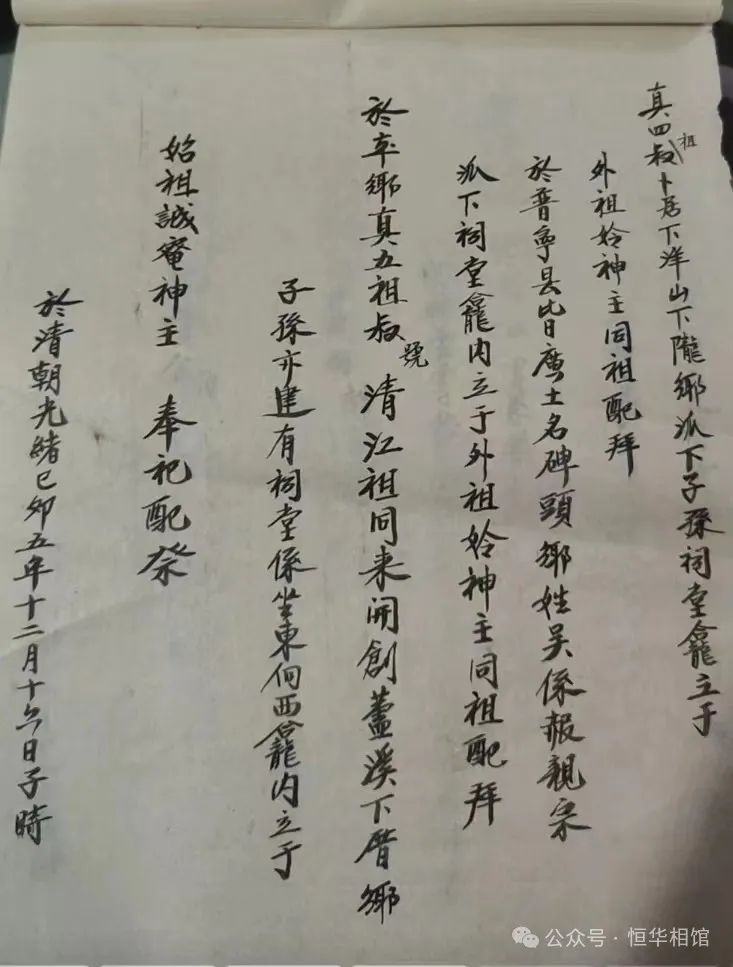 真四叔祖卜居下洋山下隴鄉派下子孫祠堂龕立于
外祖妗神主同祖配拜
於普寧县皆唐土名碑頭鄉姓吴係报親宗
派下祠堂龕内立于外祖妗神主同祖配拜
於本鄉真五祖叔號清江祖同来開創蘆溪下厝鄉
子孫亦建有祠堂係坐東向西龕内立于
始祖誠庵神主 奉祀配祭
於清朝光緒己卯五年十二月十六日子時
公众号·恒华相馆